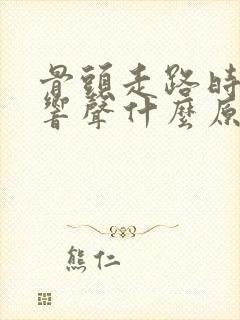 骨頭走路時
響聲什麼原
熊仁